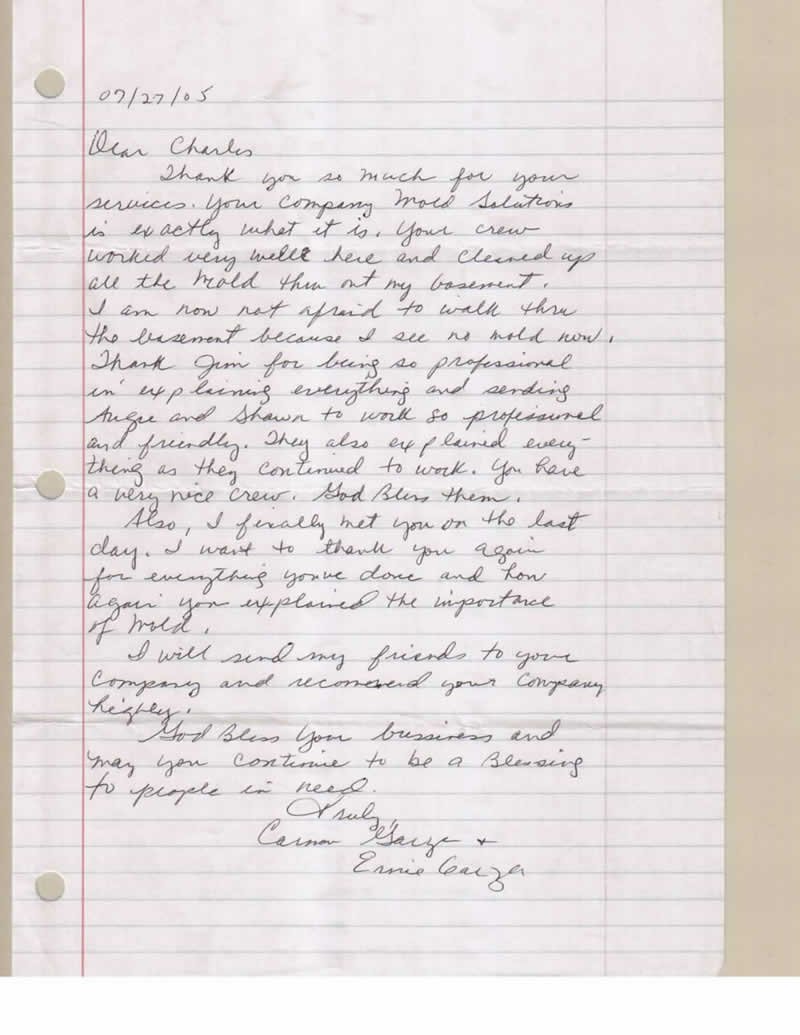 07/27/05
Dear Charles
Thank you so much for your
services. Your Company Mold Solutions
is exactly what it is. Your crew
worked very well here and cleaned up
all the Mold thru out my basement.
I am now not afraid to walk thru
the basement because I see no mold now.
Thank Jim for being so professional
in explaining everything and sending
Augie and Shawn to work so professional
and friendly. They also explained every-
thing as they continued to work. You have
a very nice crew. God Bless them.
Also, I finally met you on the last
day. I want to thank you again
for everything youve done and how
again you explained the importance
of Mold.
I will send my friends to your
Company and recomend your Company
highly.
God Bless Your bussiness and
may you continue to be a Blessing
to people in need.
Truly,
Garza +
Ernie Garza